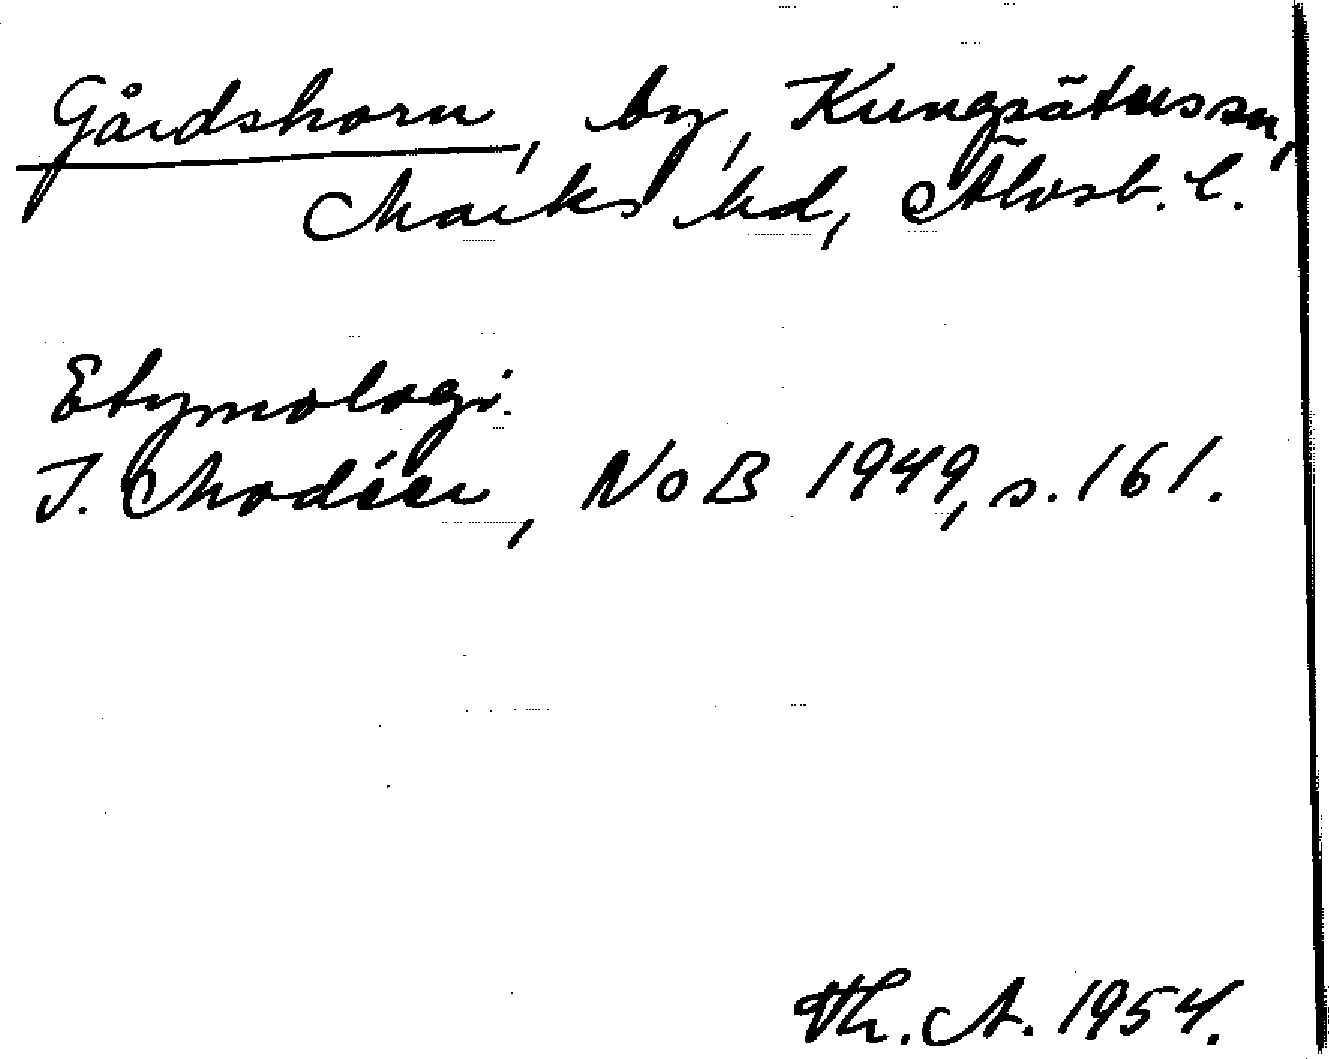 Gårdshorn, by, Kungsäters sn,
Marks hd, Älvsb. l.
Etymologi.
I. Modéer, NoB 1949, s. 161.
Th. A. 1954.